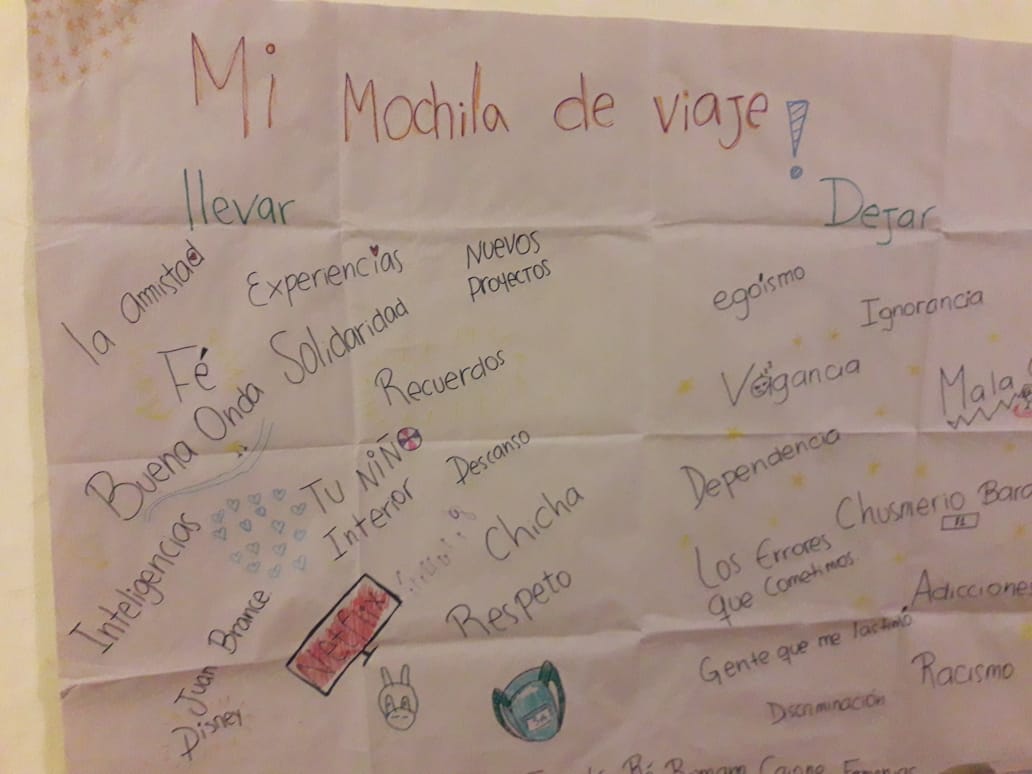 Mi Mochila de viaje!
llevar
la amistad
Experiencias
Nuevos
Proyectos
Fé
Solidaridad
Recuerdos
Buena Onda
Tu Niño
Interior
Descanso
Chicha
Inteligencias
Netflix
Respeto
Juan Brance
Disney
Dejar
egoísmo
Ignorancia
Vagancia
Mala
Dependencia
Chusmerio
Los Errores
que cometimos
Adicciones
Gente que me lastimó
Racismo
Dscriminación